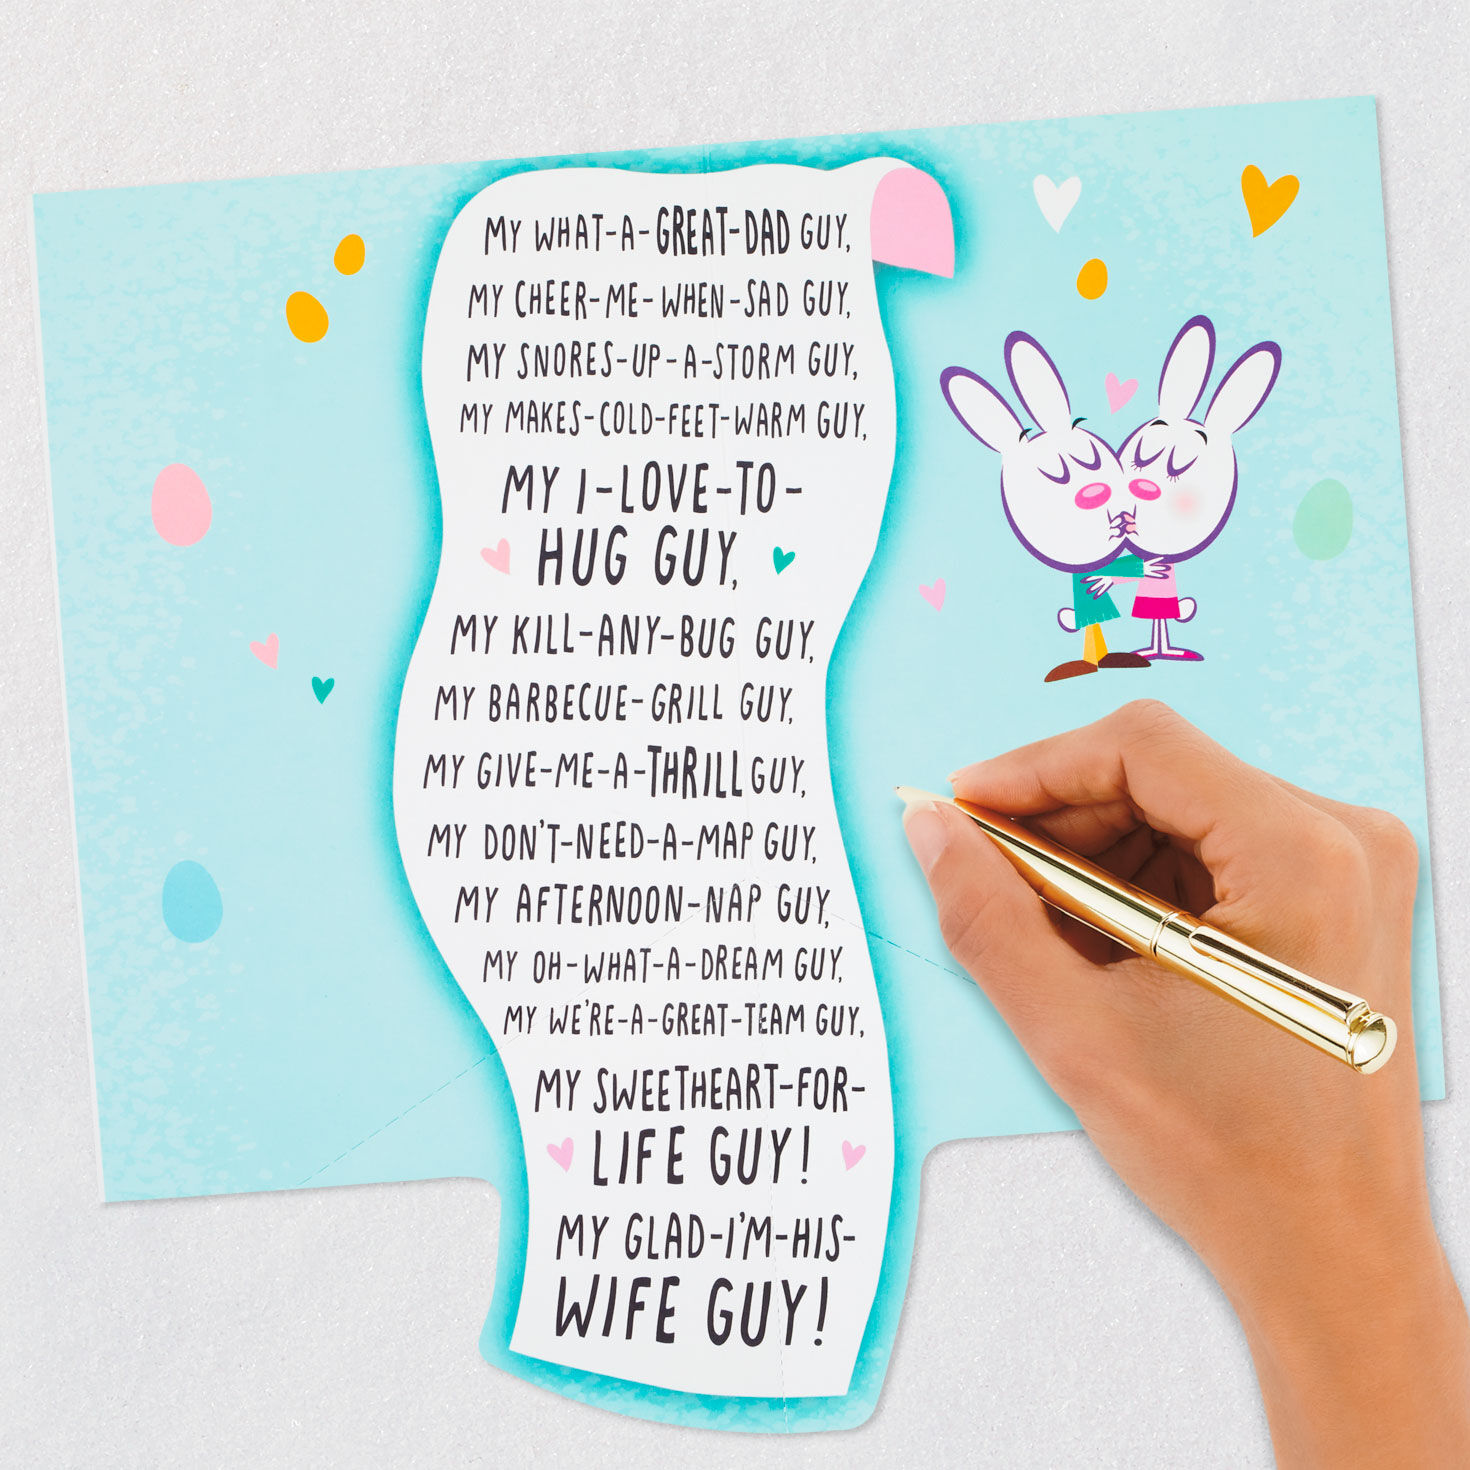 MY WHAT-A-GREAT-DAD GUY,
MY CHEER-ME-WHEN-SAD GUY,
MY SNORES-UP-A-STORM GUY,
MY MAKES-COLD-FEET-WARM GUY,
MY I-LOVE-TO-
HUG GUY,
MY KILL-ANY-BUG GUY,
MY BARBECUE-GRILL GUY,
MY GIVE-ME-A-THRILL GUY,
MY DON'T-NEED-A-MAP GUY,
MY AFTERNOON-NAP GUY,
MY OH-WHAT-A-DREAM GUY,
MY WE'RE-A-GREAT-TEAM GUY,
MY SWEETHEART-FOR-
LIFE GUY!
MY GLAD-I'M-HIS-
WIFE GUY!